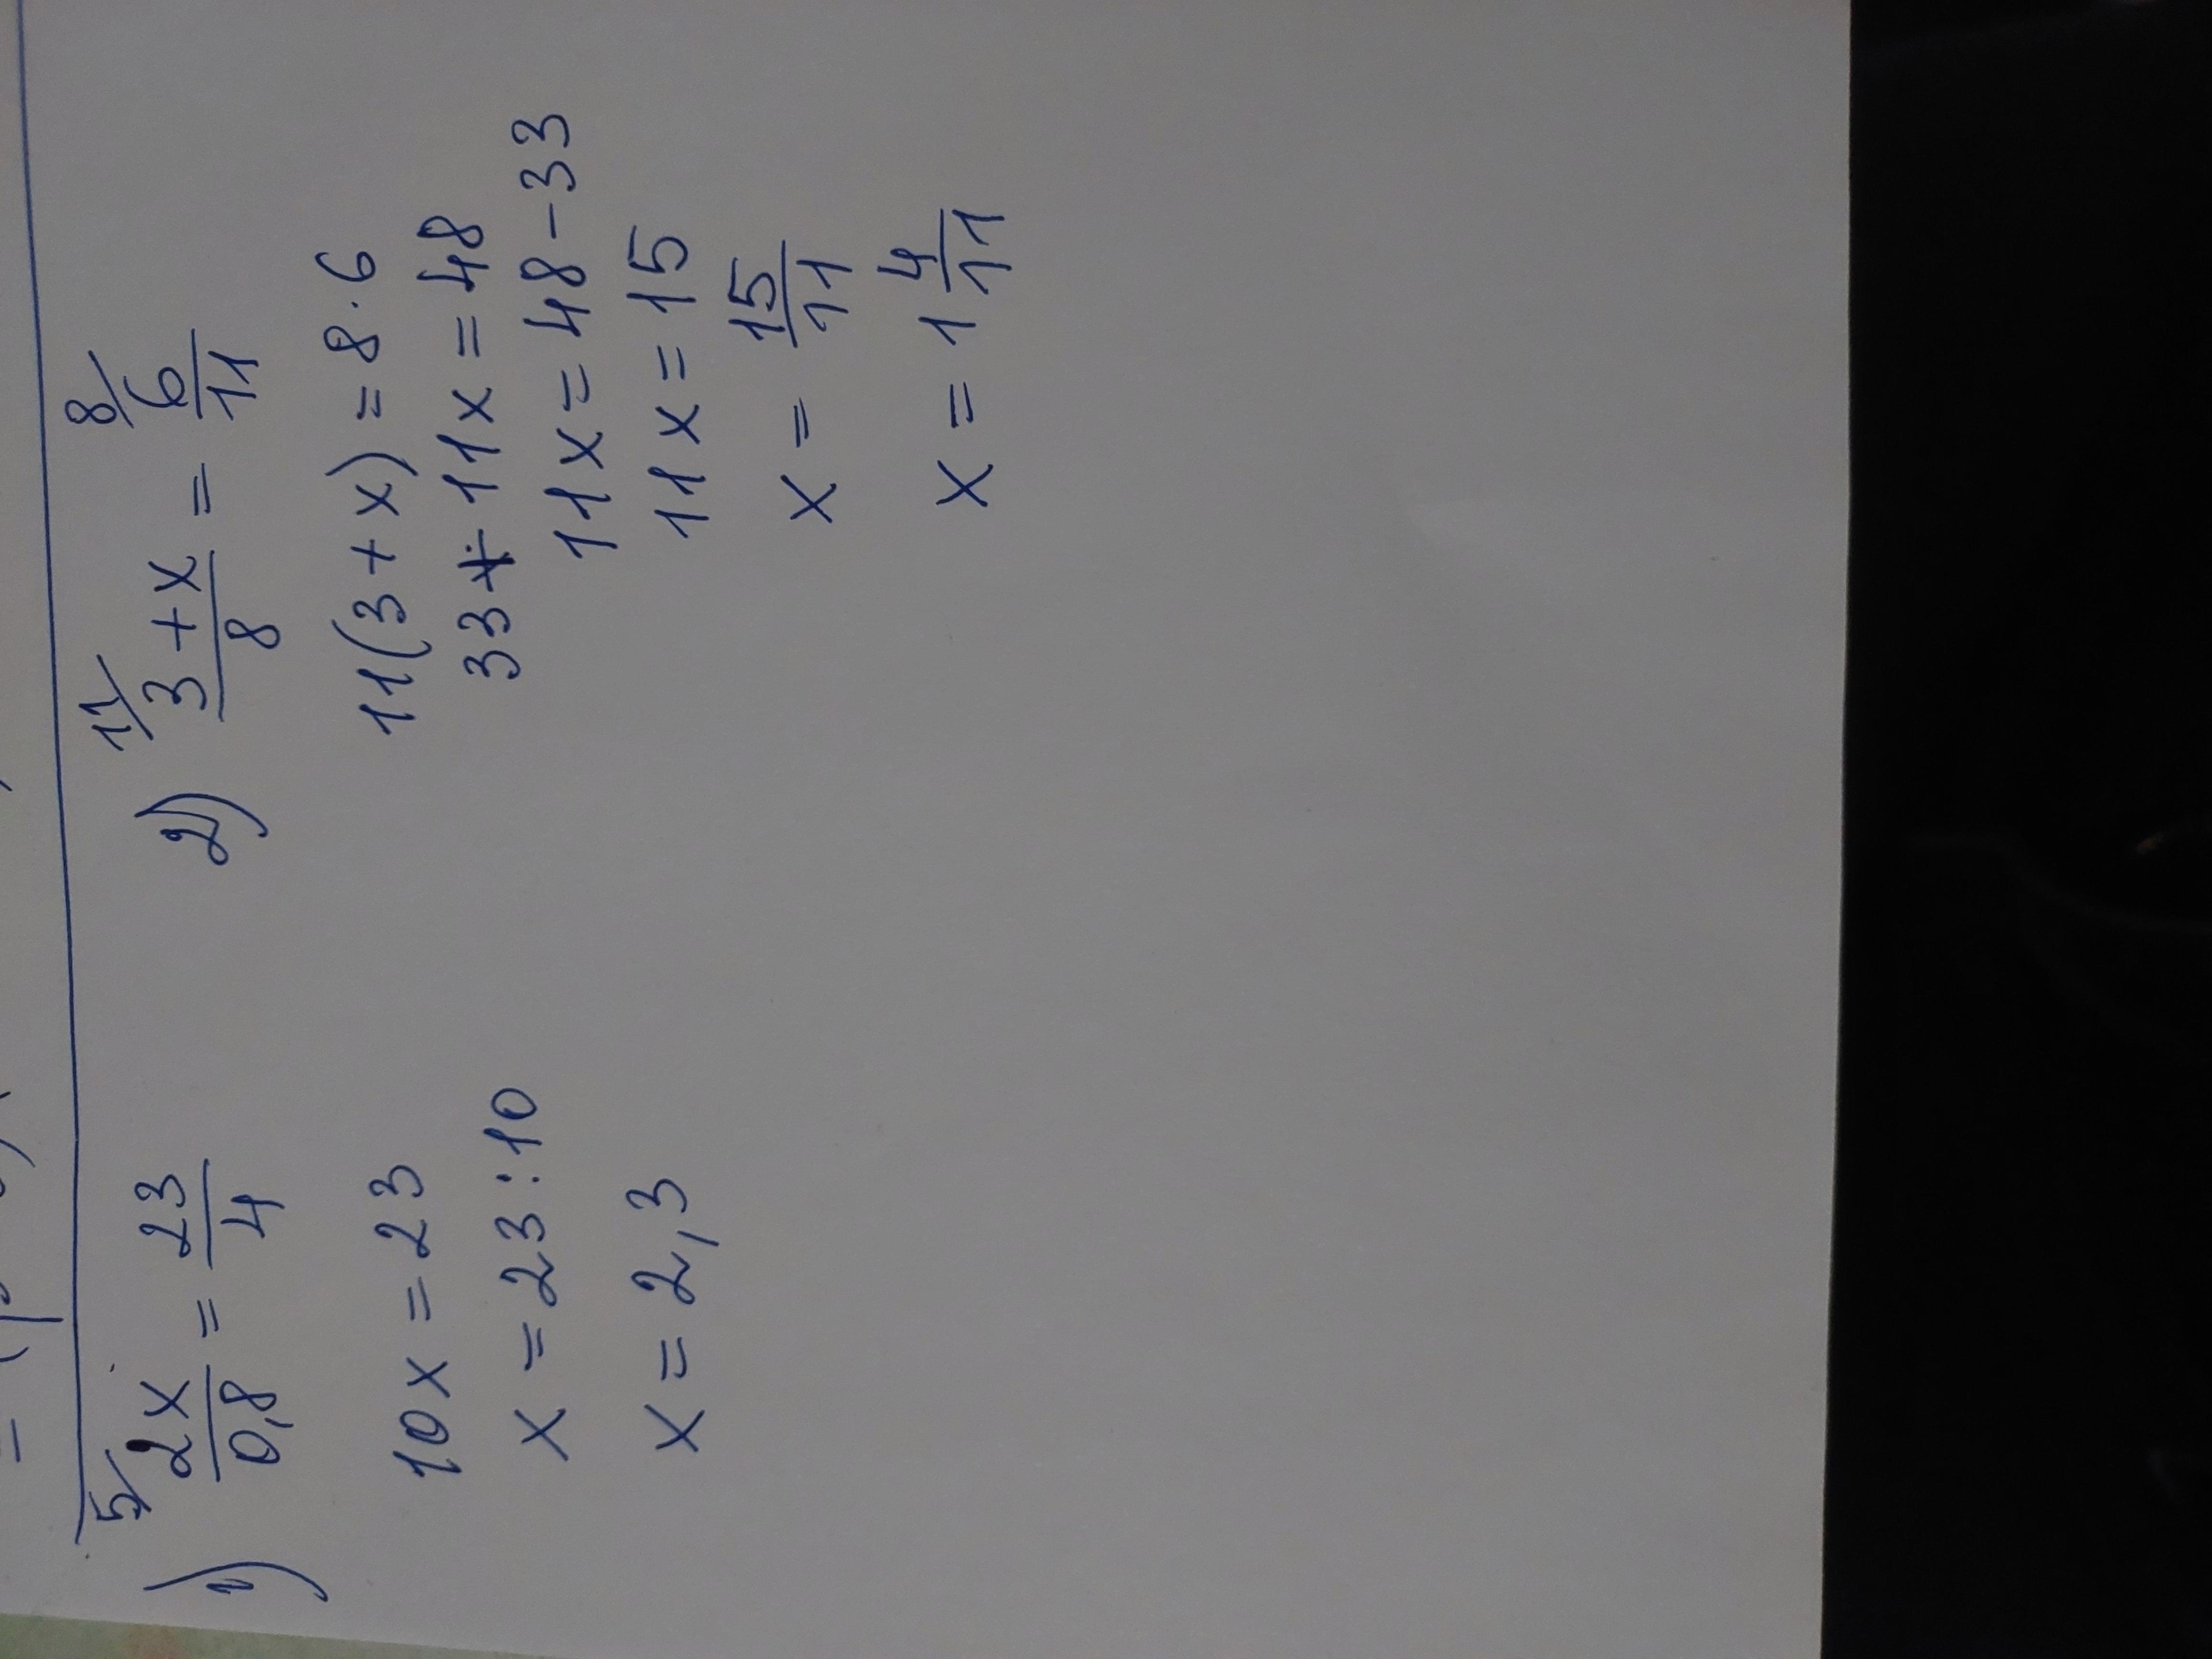 1) 5/ 2x/0,8 = 23/4
10x = 23
x = 23:10
x = 2,3
2) 11/ 3+x/8 = 8/ 6/11
11(3+x) = 8·6
33+11x = 48
11x = 48-33
11x = 15
x = 15/11
x = 1 4/11